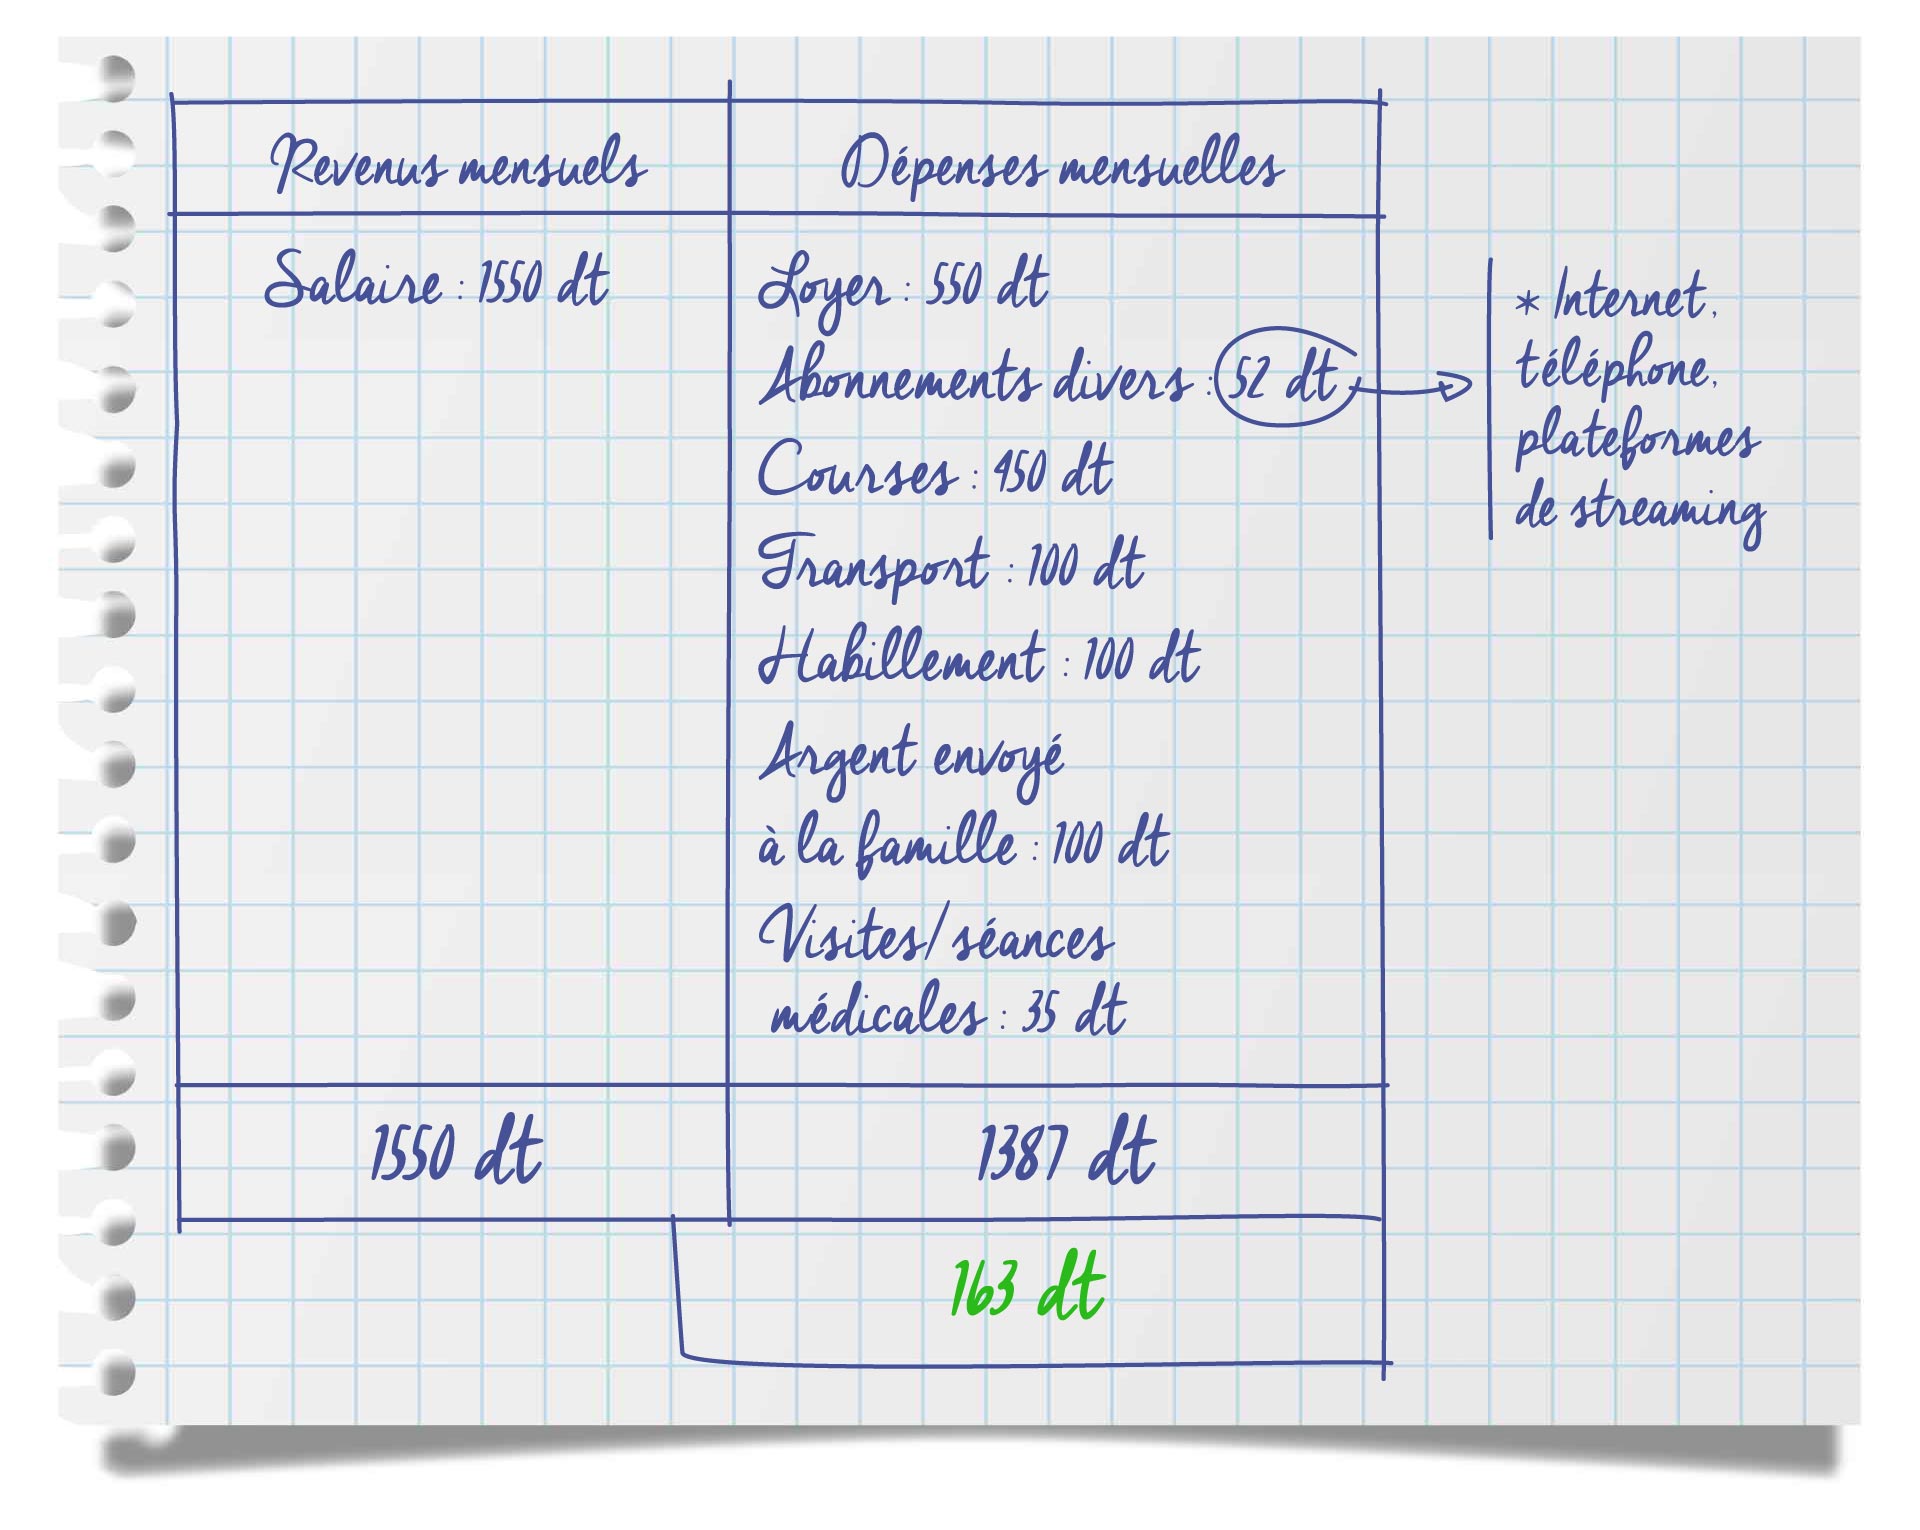 Revenus mensuels
Dépenses mensuelles
Salaire : 1550 dt
Loyer : 550 dt
Abonnements divers : 52 dt
Courses : 450 dt
Transport : 100 dt
Habillement : 100 dt
Argent envoyé
à la famille : 100 dt
Visites/séances
médicales : 35 dt
* Internet,
téléphone,
plateformes
de streaming
1550 dt
1387 dt
163 dt